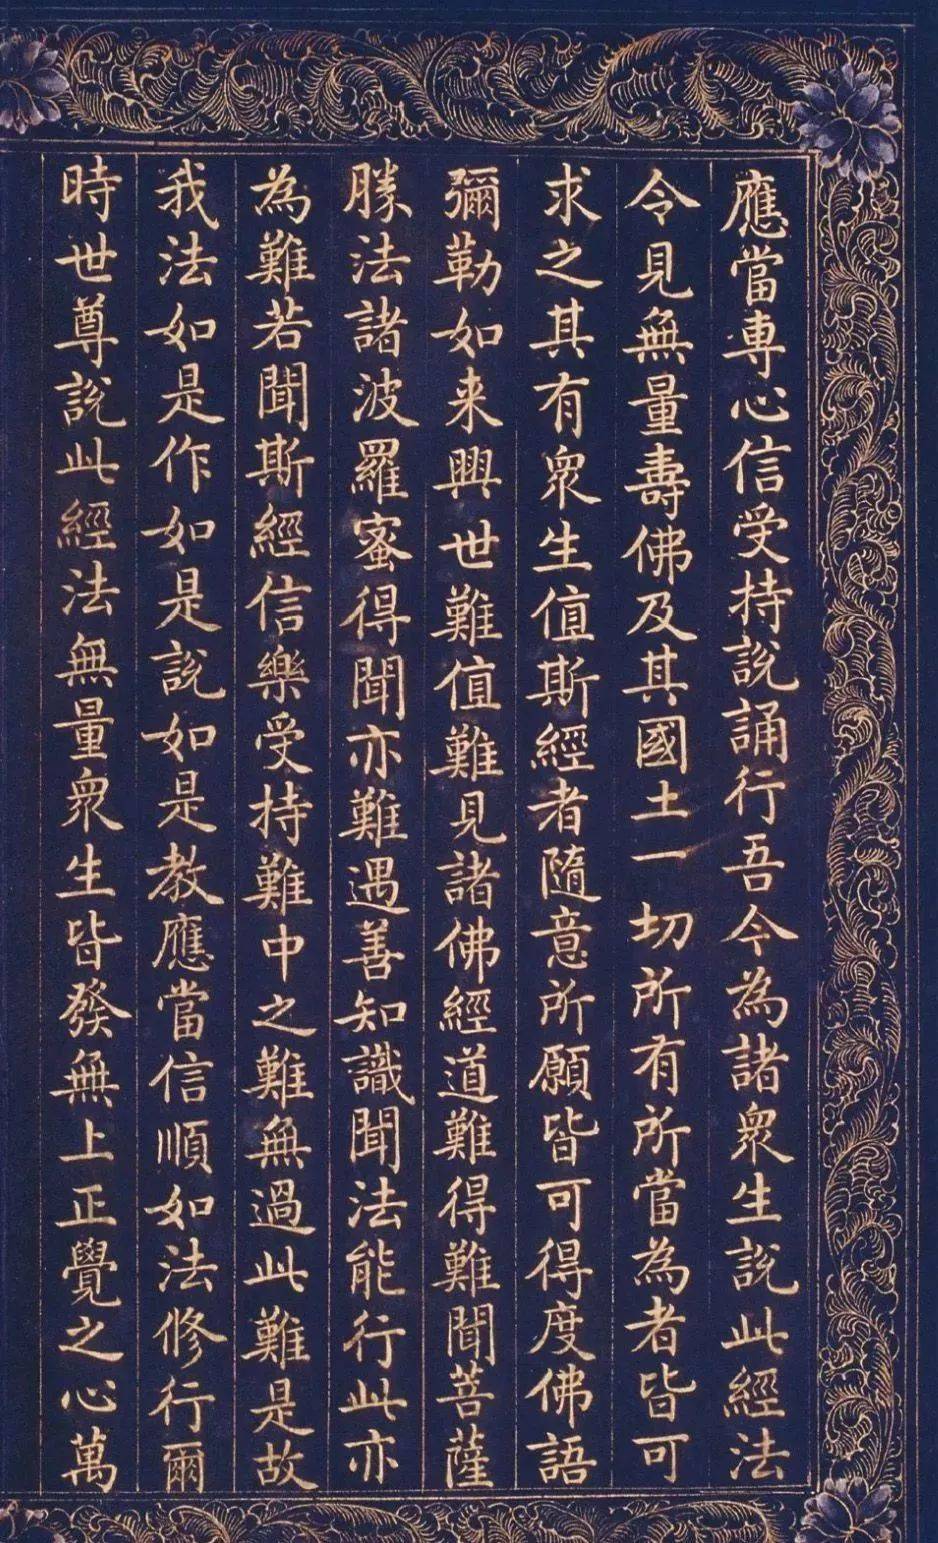 應當専心信受持說誦行吾今為諸眾生說此經法
令見無量壽佛及其國土一切所有所當為者皆可
求之其有眾生值斯經者隨意所願皆可得度佛語
彌勒如来興世難值難見諸佛經道難得難聞菩薩
勝法諸波羅蜜得聞亦難遇善知識聞法能行此亦
為難若聞斯經信樂受持難中之難無過此難是故
我法如是作如是說如是教應當信順如法修行爾
時世尊說此經法無量眾生皆發無上正覺之心萬